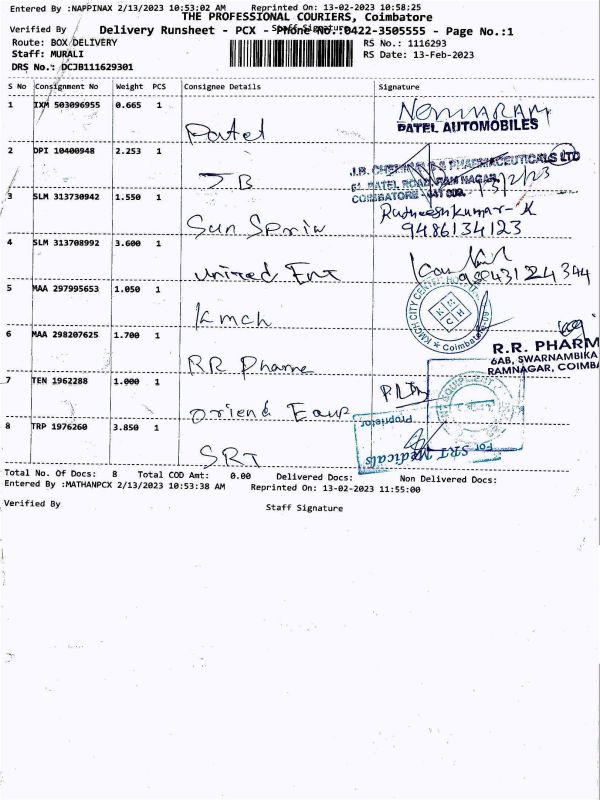 Entered By :NAPPINAX 2/13/2023 10:53:02 AM Reprinted On: 13-02-2023 10:58:25
THE PROFESSIONAL COURIERS, Coimbatore
Verified By Staff Signature
Delivery Runsheet - PCX - Phone No.:0422-3505555 - Page No.:1
Route: BOX DELIVERY RS No.: 1116293
Staff: MURALI RS Date: 13-Feb-2023
DRS No.: DCJB111629301
S No Consignment No Weight PCS Consignee Details Signature
1 IXM 503096955 0.665 1 Patel
PATEL AUTOMOBILES
2 DPI 10400948 2.253 1 JB
J.B. CHEMICALS & PHARMACEUTICALS LTD
PATEL ROAD, RAM NAGAR,
COIMBATORE - 641 009.
13/2/23
3 SLM 313730942 1.550 1 Sun Sprin
Rudneeshkumar-K
9486134123
4 SLM 313708992 3.600 1 United Ent
5 MAA 297995653 1.050 1 Kmch
KMCH CITY CENTER
KMCH
Coimbatore
6 MAA 298207625 1.700 1 RR Pharma
R.R. PHARM
6AB, SWARNAMBIKA
RAMNAGAR, COIMBA
7 TEN 1962288 1.000 1 Oriend Equp
8 TRP 1976260 3.850 1 SRT
For SRT Medicals
Proprietor
Total No. Of Docs: 8 Total COD Amt: 0.00 Delivered Docs: Non Delivered Docs:
Entered By :MATHANPCX 2/13/2023 10:53:38 AM Reprinted On: 13-02-2023 11:55:00
Verified By Staff Signature